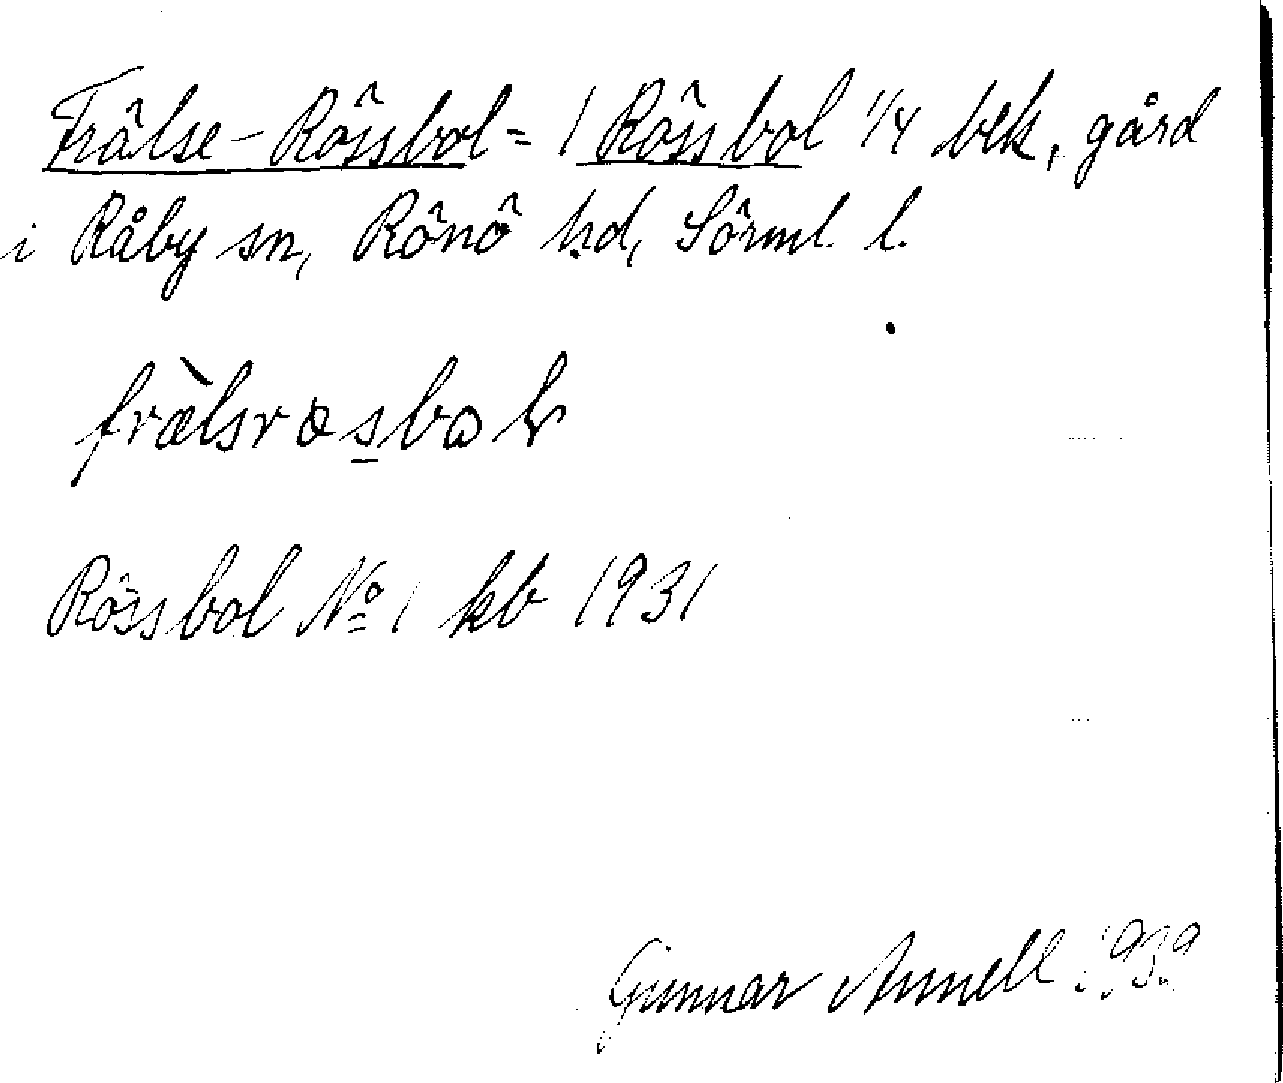 Frälse-Rössbol = 1 Rössbol 1/4 blk, gård
i Råby sn, Rönö hd, Sörml. l.
Rössbol № 1 kb 1931
Gunnar Annell 1939